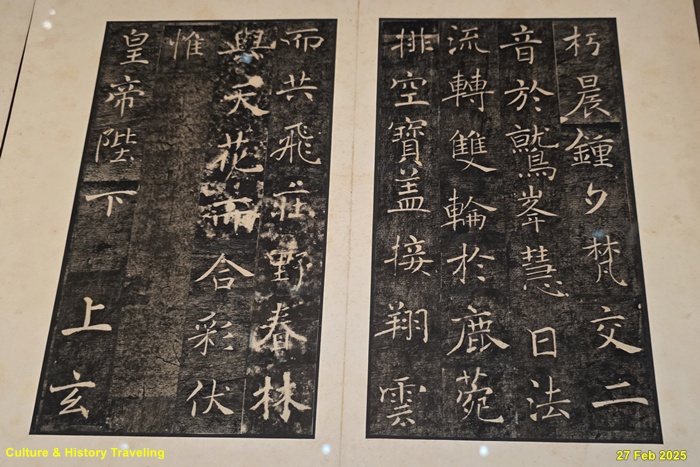 朽晨鍾夕梵交二
音於鷲峯慧日法
流轉雙輪於鹿菀
排空寶盖接翔雲
而共飛莊野春林
與天花而合彩伏
惟
皇帝陛下上玄
Culture & History Traveling
27 Feb 2025